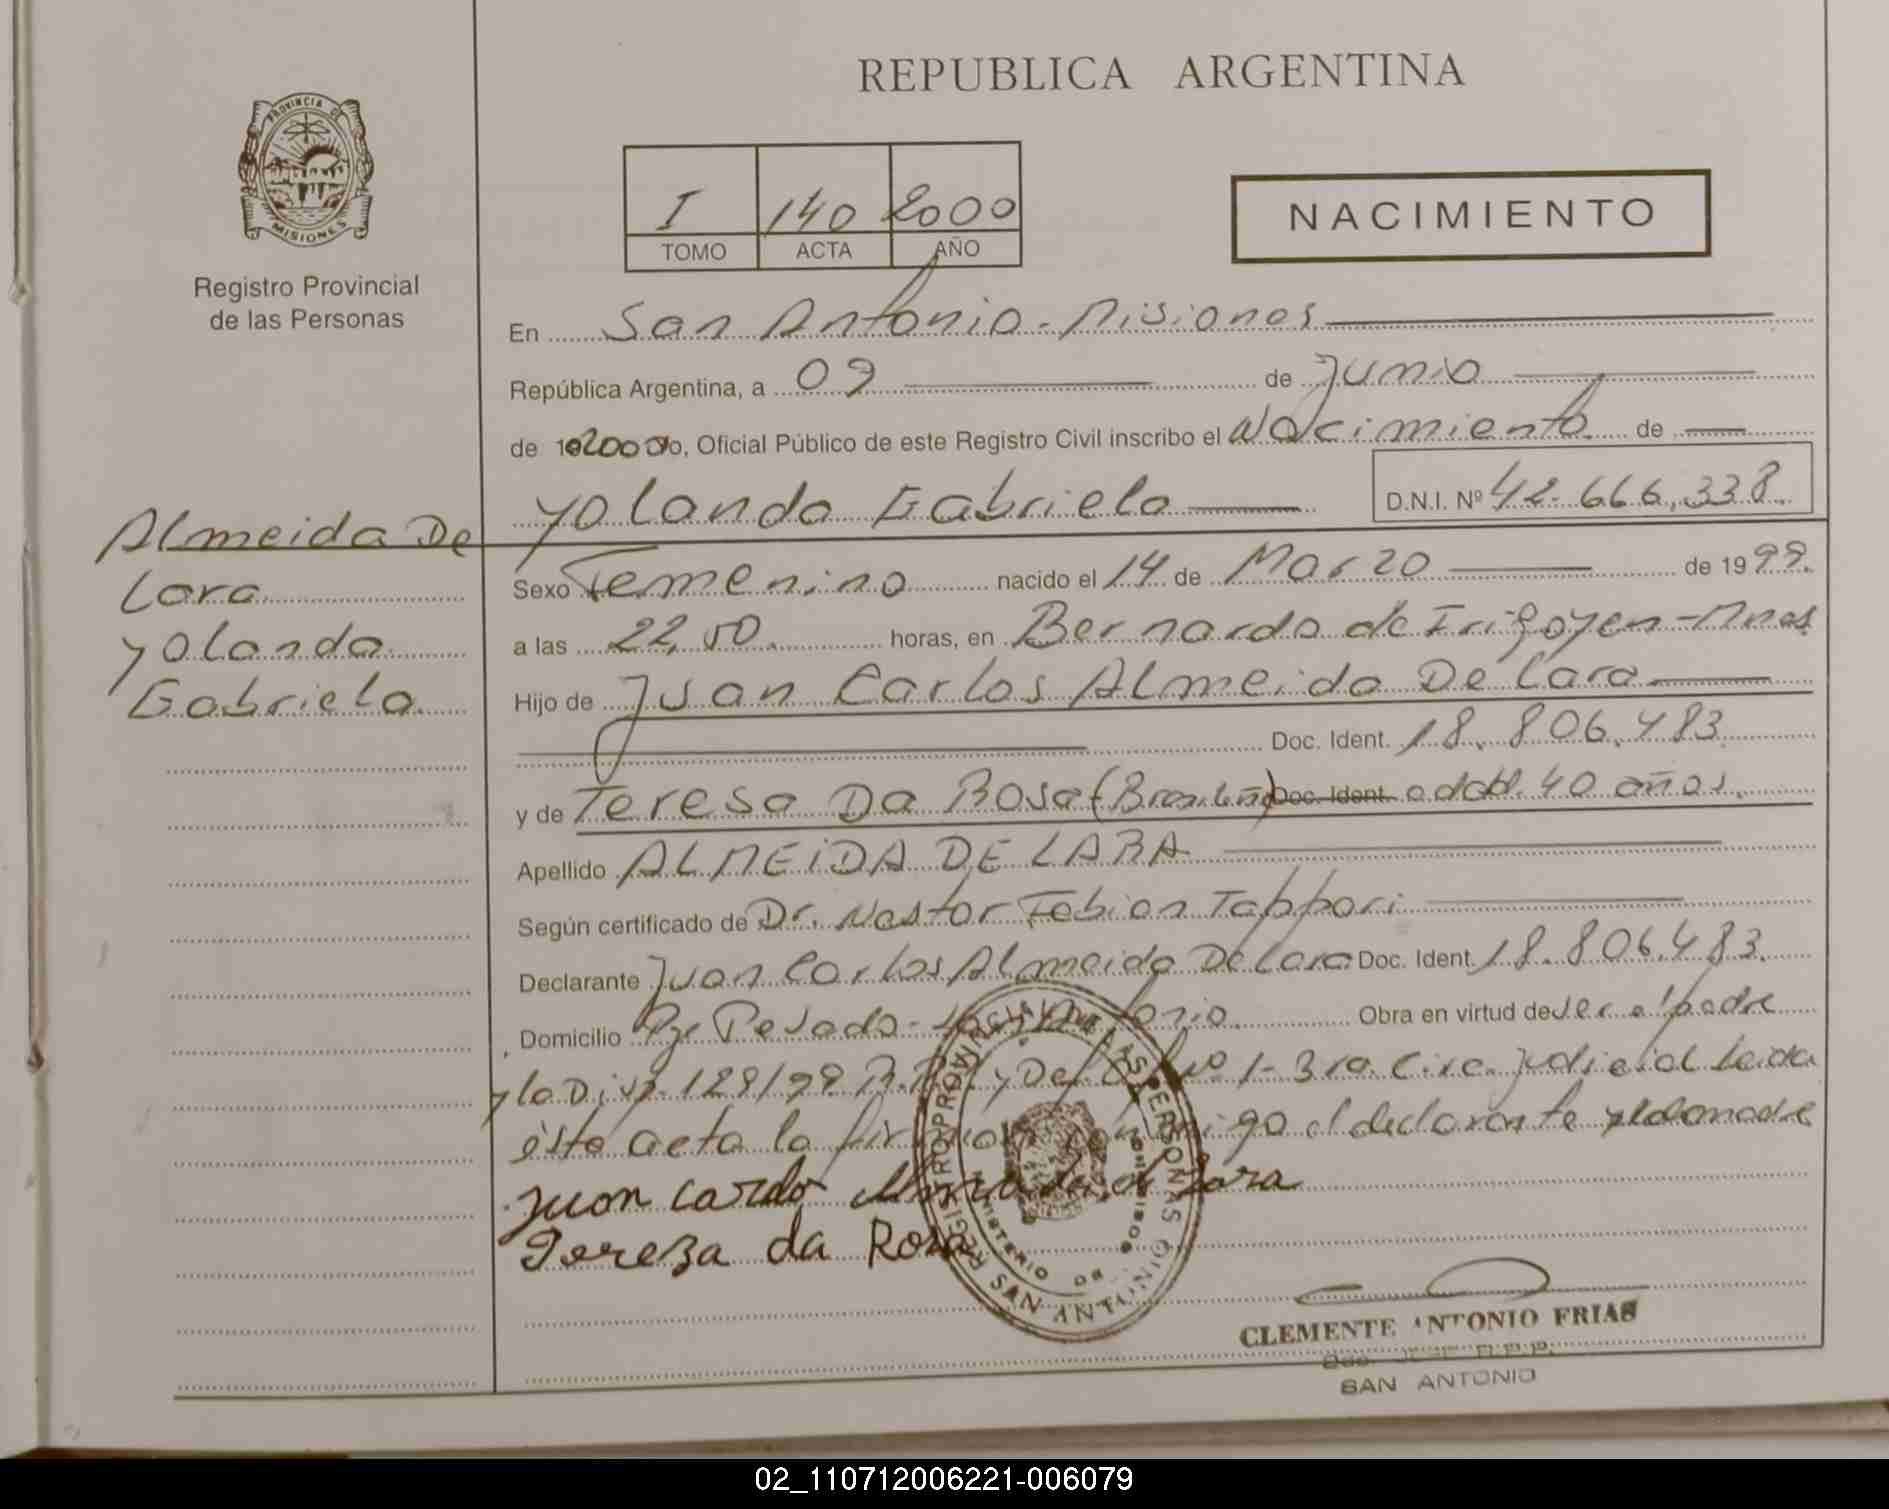 REPUBLICA ARGENTINA
PROVINCIA DE
MISIONES
Registro Provincial
de las Personas
I 140 2000
TOMO ACTA AÑO
NACIMIENTO
En San Antonio - Misiones
República Argentina, a 09 de Junio
de 2000 yo, Oficial Público de este Registro Civil inscribo el Nacimiento de
Yolanda Gabriela D.N.I. Nº 42.666.338.
Almeida De
Lara
Yolanda
Gabriela
Sexo Femenino nacido el 14 de Marzo de 1999.
a las 22,50 horas, en Bernardo de Irigoyen - Mnes
Hijo de Juan Carlos Almeida De Lara
Doc. Ident. 18.806.483
y de Teresa Da Rosa (Brasileña) Doc. Ident. edad. 40 años.
Apellido ALMEIDA DE LARA
Según certificado de Dr. Nestor Fabian Tappari
Declarante Juan Carlos Almeida De Lara Doc. Ident. 18.806.483.
Domicilio Pje Pesado - San Antonio Obra en virtud de ser el padre
y la Disp. 129/99 y Def. Of. Nº 1 - 3ra. Circ. Judicial Leida
ésta acta la firman conmigo el declarante y la madre
Juan Carlo Almeida de Lara
Tereza da Rosa
REGISTRO PROVINCIAL DE LAS PERSONAS
SAN ANTONIO
MINISTERIO DE GOBIERNO
CLEMENTE ANTONIO FRIAS
SAN ANTONIO
02_110712006221-006079